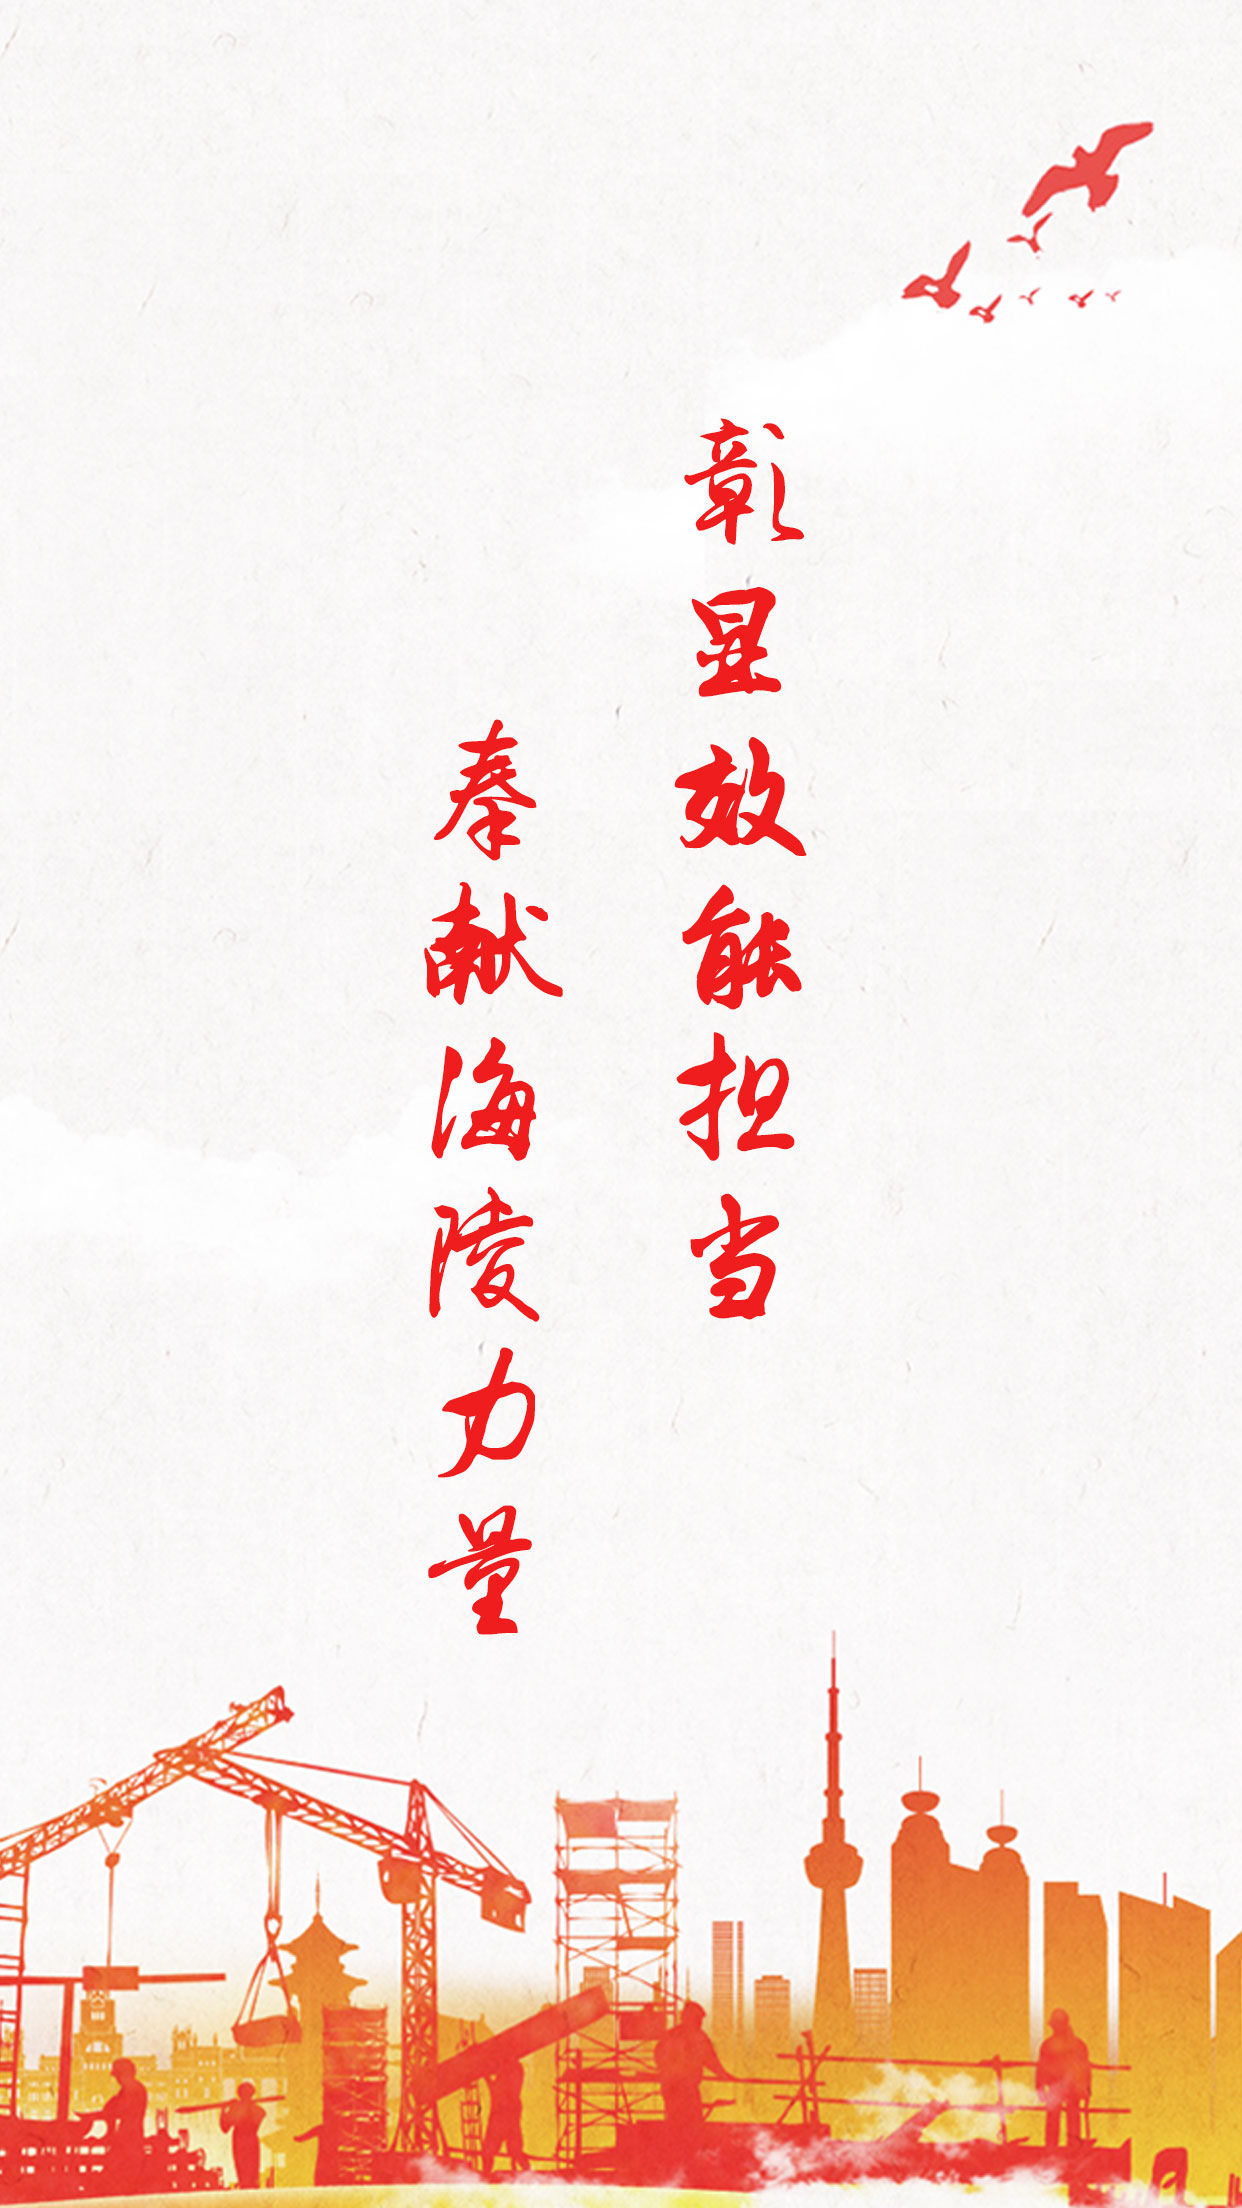 彰显效能担当
奉献海陵力量